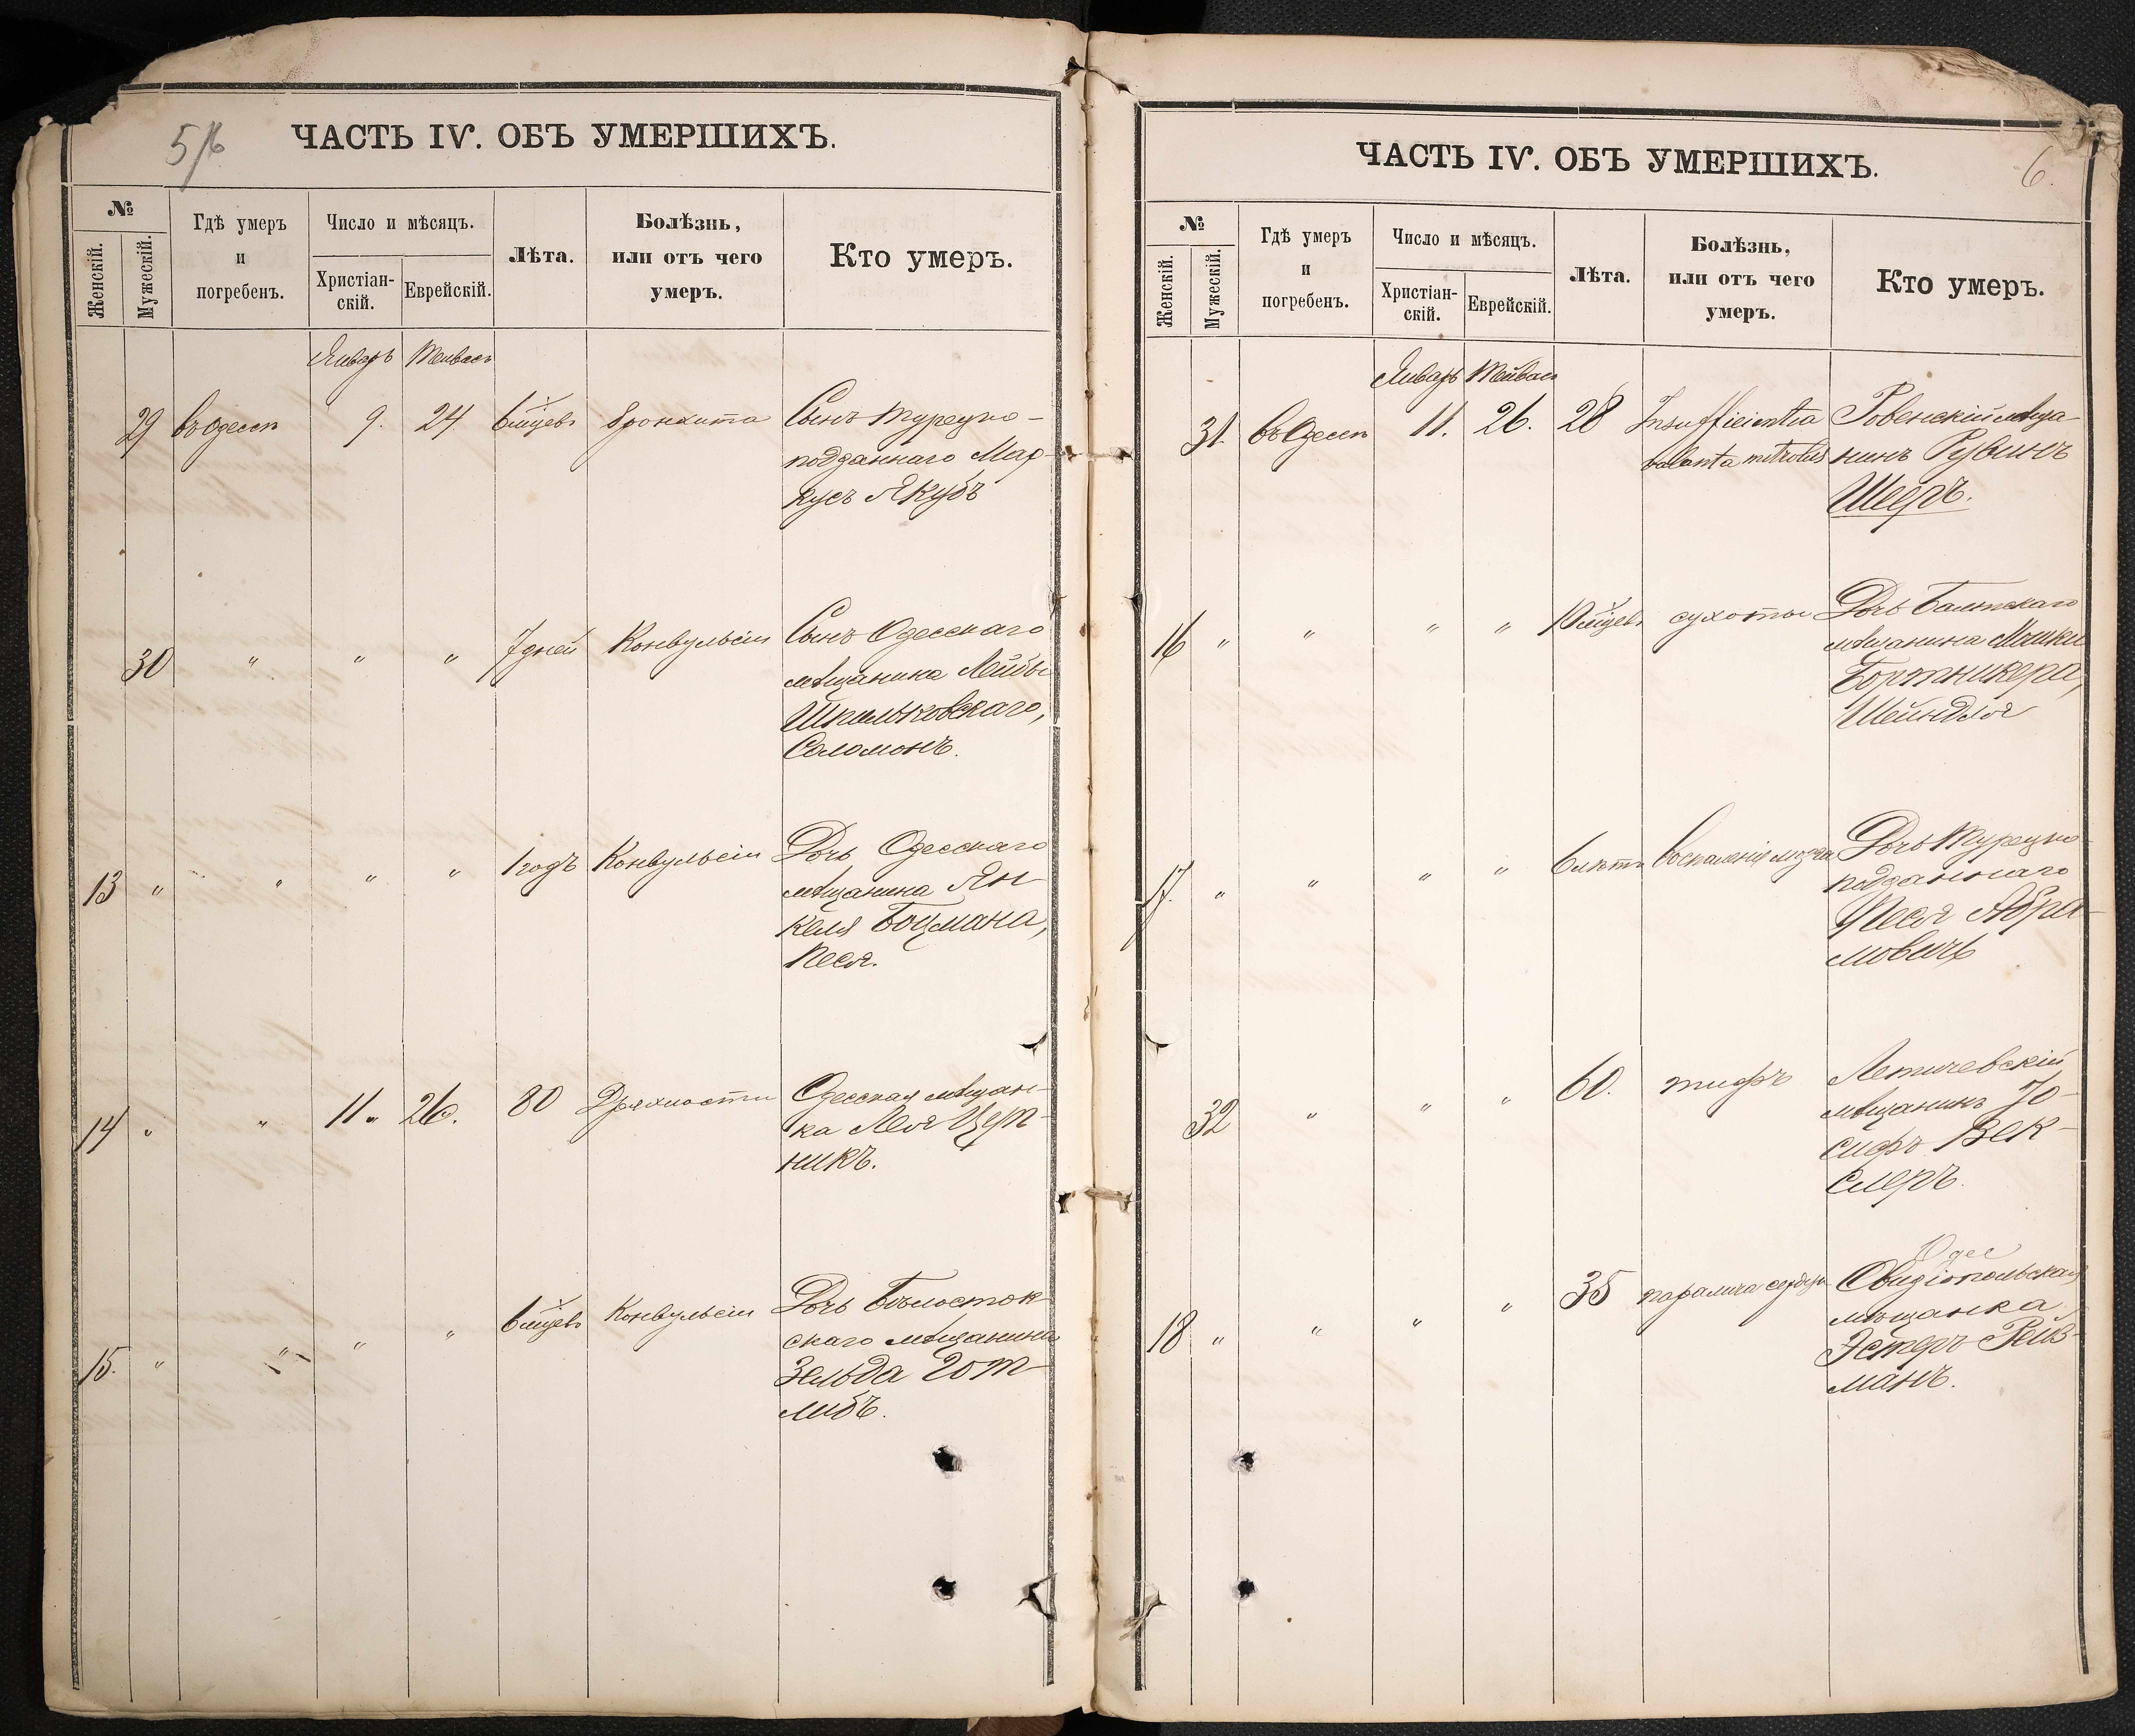 5/6
ЧАСТЬ IV. ОБЪ УМЕРШИХЪ.
№
Женскій.
Мужескій.
Гдѣ умеръ
и
погребенъ.
Число и мѣсяцъ.
Христіан-
скій.
Еврейскій.
Лѣта.
Болѣзнь,
или отъ чего
умеръ.
Кто умеръ.
Январь Тейвасъ
29 въ Одессѣ 9. 24. 6 мѣсяцевъ бронхита Сынъ Турецко-
подданнаго Мар-
кусъ Якубъ
30 " " " 7 дней Конвульсіи Сынъ Одесскаго
мѣщанина Лейбы
Шпильковскаго,
Соломонъ.
13 " " " " 1 годъ Конвульсіи Дочь Одесскаго
мѣщанина Ян-
келя Боцмана,
Песя.
14 " " 11. 26. 80 Дряхлости Одесская мѣщан-
ка Лея Церт-
никъ.
15. " " " " 6 мѣсяцевъ Конвульсіи Дочь Бѣлосток-
скаго мѣщанина
Зельда Гот-
либъ.
ЧАСТЬ IV. ОБЪ УМЕРШИХЪ.
6.
№
Женскій.
Мужескій.
Гдѣ умеръ
и
погребенъ.
Число и мѣсяцъ.
Христіан-
скій.
Еврейскій.
Лѣта.
Болѣзнь,
или отъ чего
умеръ.
Кто умеръ.
Январь Тейвасъ
31. въ Одессѣ 11. 26. 28 Insufficientia Ровенскій мѣща-
нинъ Рувинъ
Шееръ.
16 " " " " 10 мѣсяцевъ сухоты Дочь Балтскаго
мѣщанина Мошки
Бортникера,
Шейндля
17. " " " " 6 лѣтъ Воспаленія мозга Дочь Турецко
подданнаго
Песя Абра-
мовичъ
32 " " " 60. тифъ Летичевскій
мѣщанинъ Іо-
сифъ Век-
слеръ.
Одес
18 " " " " 35 паралича сердца Овидіопольская
мѣщанка
Эстеръ Рейз-
манъ.